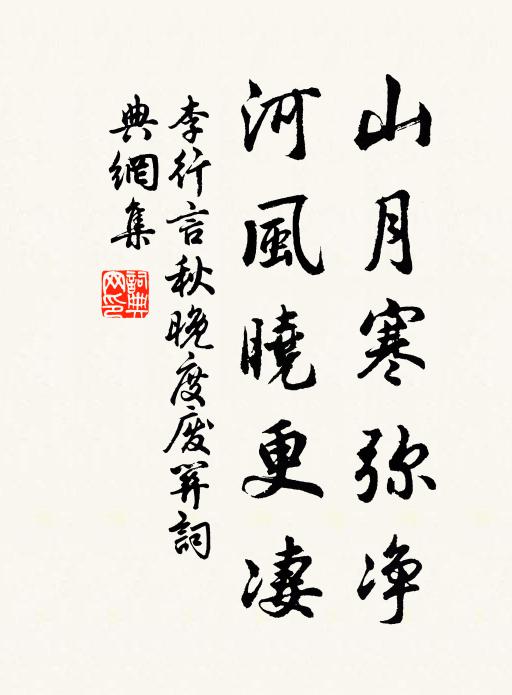 山月寒弥净
河風曉更凄
李行言秋晚度废関詞
典網集
詞典网印